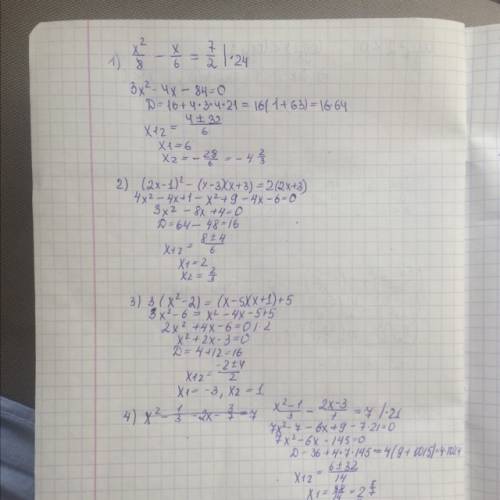 1) x²/8 - x/6 = 7/2 | ·24
3x² - 4x - 84 = 0
D = 16 + 4·3·4·21 = 16(1+63) = 16·64
x₁,₂ = (4 ± 32)/6
x₁ = 6
x₂ = -28/6 = -4 2/3
2) (2x-1)² - (x-3)(x+3) = 2(2x+3)
4x² - 4x + 1 - x² + 9 - 4x - 6 = 0
3x² - 8x + 4 = 0
D = 64 - 48 = 16
x₁,₂ = (8 ± 4)/6
x₁ = 2
x₂ = 2/3
3) 3(x²-2) = (x-5)(x+1)+5
3x² - 6 = x² - 4x - 5 + 5
2x² + 4x - 6 = 0 /:2
x² + 2x - 3 = 0
D = 4 + 12 = 16
x₁,₂ = (-2 ± 4)/2
x₁ = -3, x₂ = 1
4) x² - 1/3 - 2x - 3/7 = 7
(x²-1)/3 - (2x-3)/7 = 7 /·21
7x² - 7 - 6x + 9 - 7·21 = 0
7x² - 6x - 145 = 0
D = 36 + 4·7·145 = 4(9+1015) = 4·1024
x₁,₂ = (6 ± 32)/14